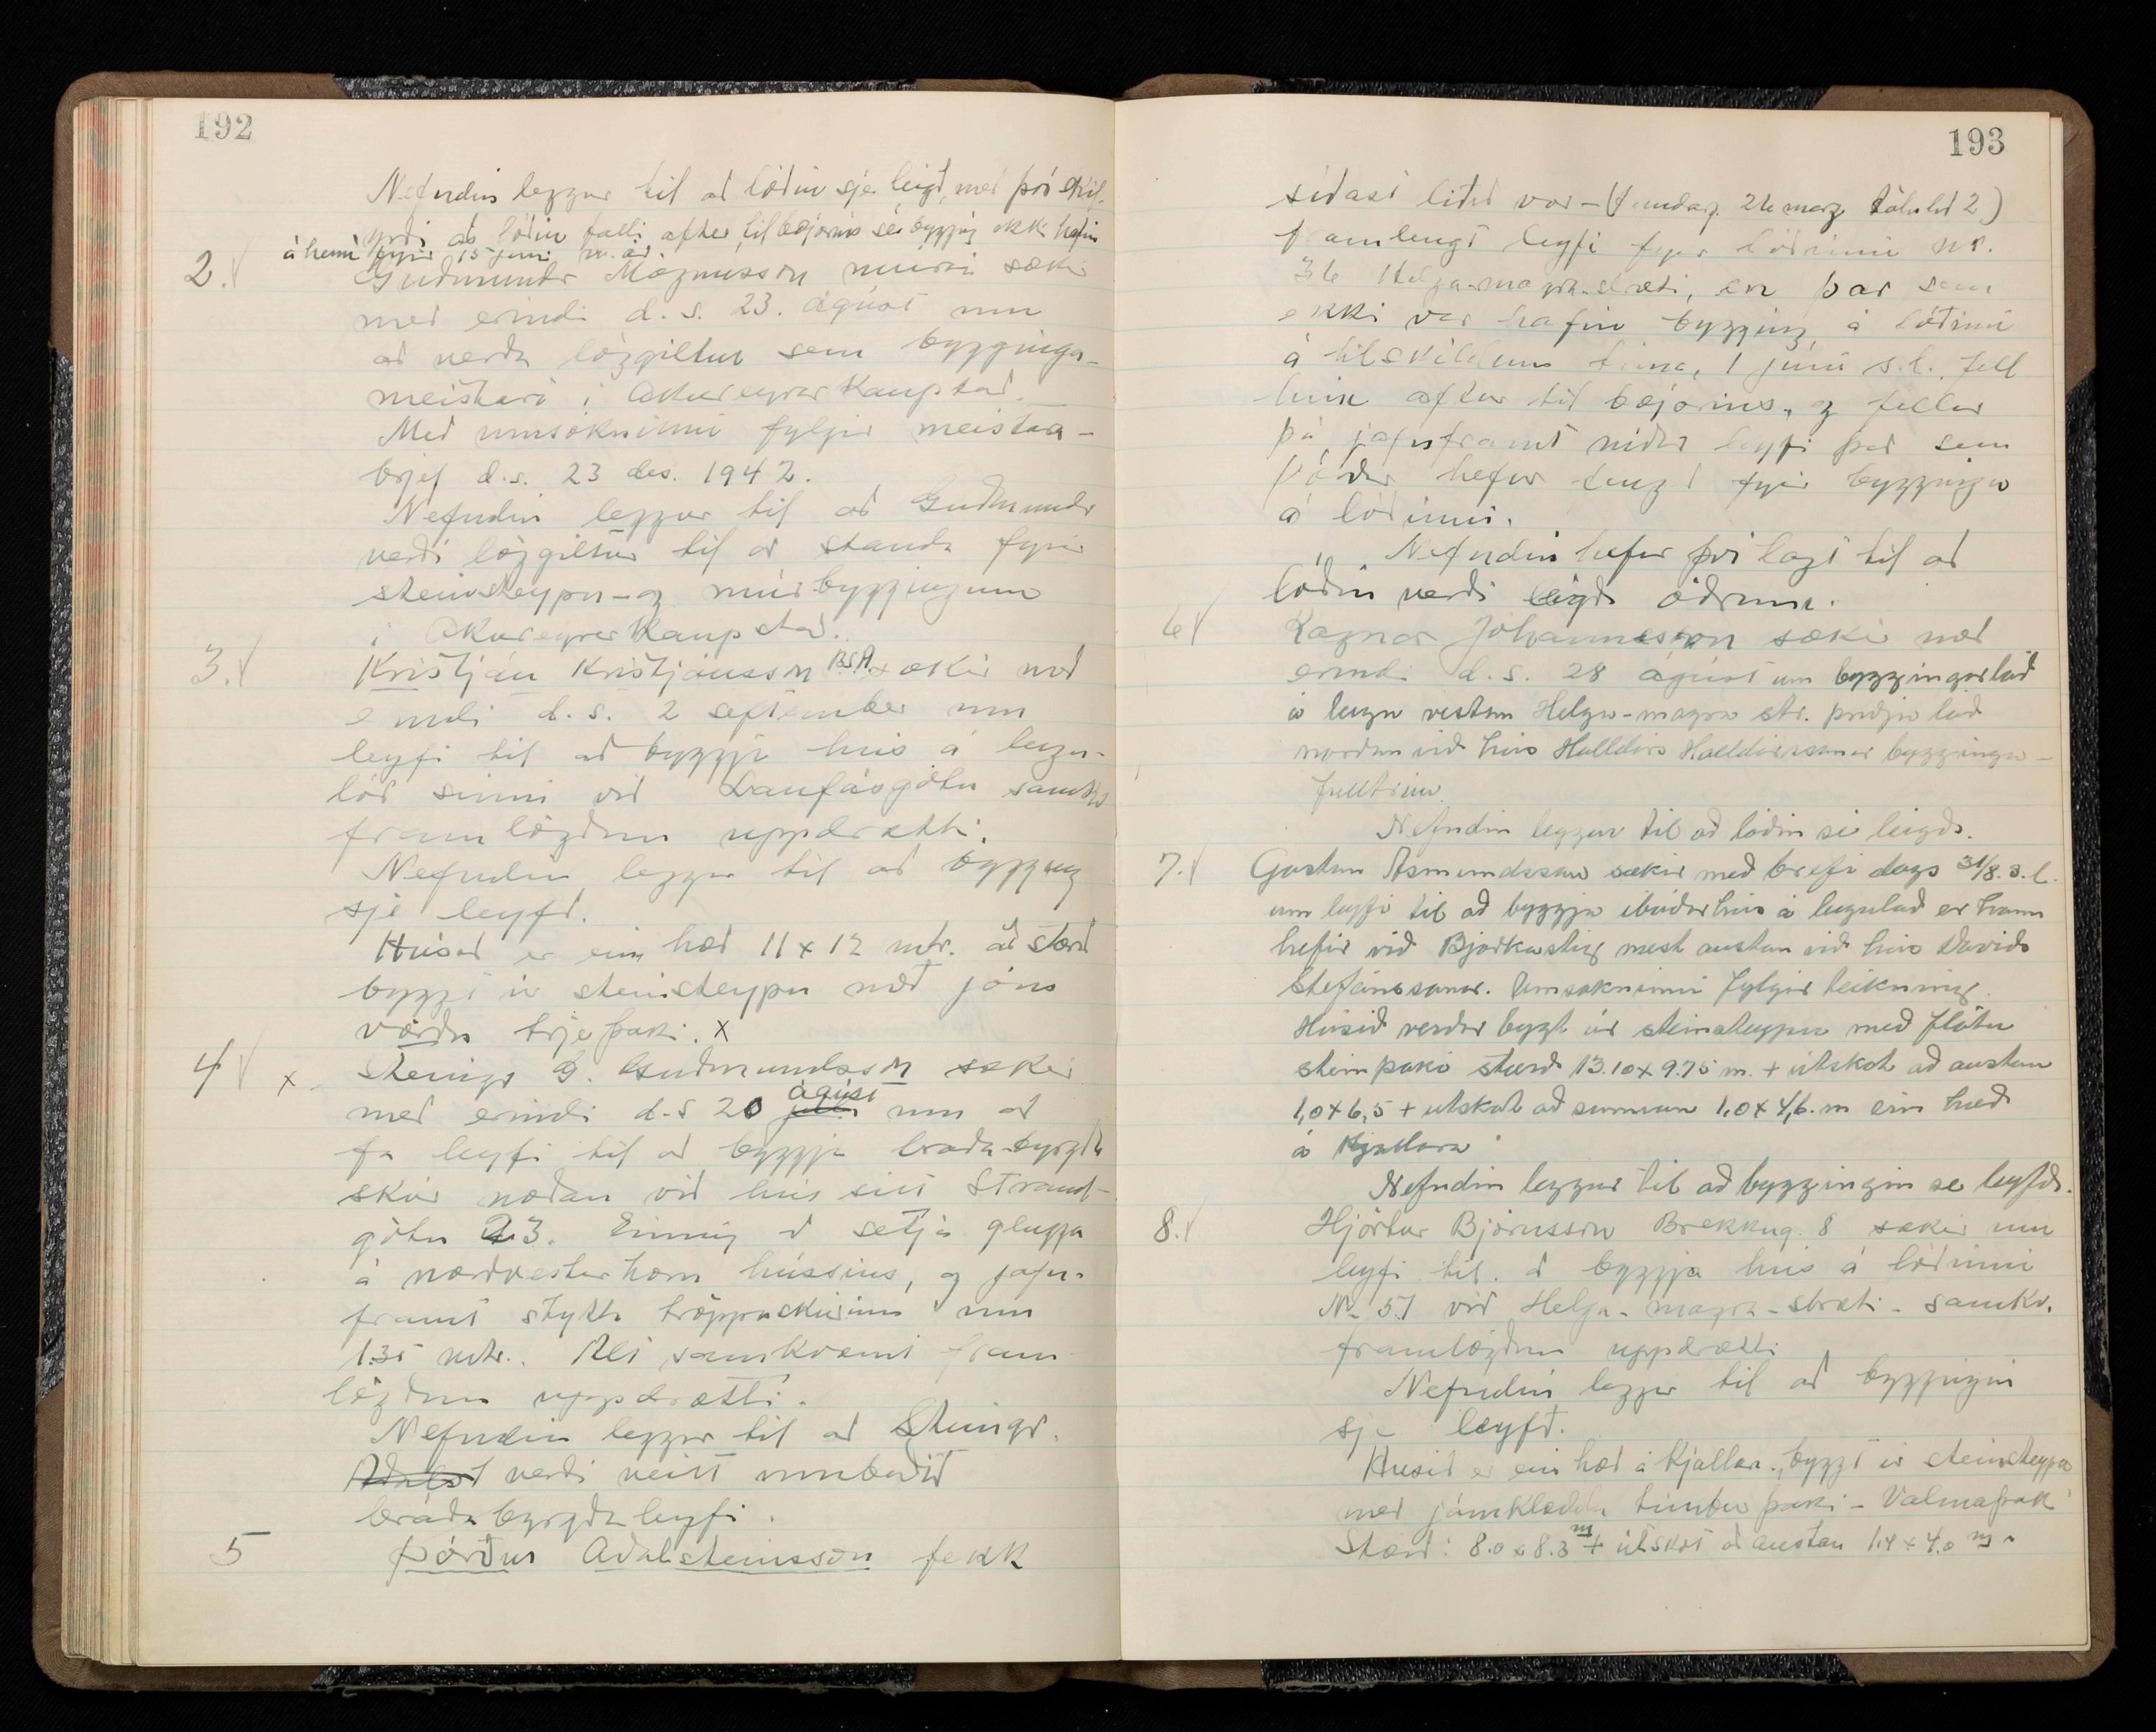 192
Nefndin leggur til að lóðin sje leigð, með því skil-
yrði að lóðin falli aftur til bæjarins sé bygging ekki hafin
á henni fyrir 15 júní n. ár
2. Guðmundur Magnússon múrari sækir
með erindi d.s. 23. ágúst um
að verða löggiltur sem bygginga-
meistari í Akureyrarkaupstað.
Með umsókninni fylgir meistara-
brjef d.s. 23 des. 1942.
Nefndin leggur til að Guðmundur
verði löggiltur til að standa fyrir
steinsteypu- og múrbyggingum
í Akureyrarkaupstað.
3. Kristján Kristjánsson BSA sækir með
erindi d.s. 2 september um
leyfi til að byggja hús á leigu-
lóð sinni við Laufásgötu samkv.
framlögðum uppdrætti.
Nefndin leggur til að bygging
sje leyfð.
Húsið er ein hæð 11 x 12 mtr. að stærð
byggt úr steinsteypu með járn
vörðu trjeþaki. x
4 x Steingr G. Guðmundsson sækir
með erindi d.s 20 ágúst um að
fá leyfi til að byggja bráðabyrgða
skúr norðan við hús sitt Strand-
götu 23. Einnig að setja glugga
á norðvesturhorn hússins, og jafn-
framt stytta tröppuskúrinn um
1.35 mtr. Alt samkvæmt fram
lögðum uppdrætti.
Nefndin leggur til að Steingr.
Aðalst verði veitt umbeðið
bráðabyrgðaleyfi.
5 Þórður Aðalsteinsson fekk
193
síðast liðið vor - (fundarg. 26 marz tölulið 2)
framlengt leyfi fyrir lóðinni nr.
36 Helga-magra-stræti, en þar sem
ekki var hafin bygging á lóðinni
á tilskildum tíma, 1 júní s.l. fell
hún aftur til bæjarins, og fellur
þá jafnframt niður leyfi það sem
Þórður hefur fengið fyrir byggingu
á lóðinni.
Nefndin hefur því lagt til að
lóðin verði leigð öðrum.
6 Ragnar Jóhannesson sækir með
erindi d.s. 28 ágúst um byggingarlóð
á leigu vestan Helga-magra str. þriðju lóð
norðan við hús Halldórs Halldórssonar bygginga-
fulltrúa.
Nefndin leggur til að lóðin sé leigð.
7. Gestur Ásmundsson sækir með bréfi dags 31/8. s.l.
um leyfi til að byggja íbúðarhús á leigulóð er hann
hefir við Bjarkastíg næst austan við hús Davíðs
Stefánssonar. Umsókninni fylgir teikning.
Húsið verður byggt úr steinsteypu með flötu
steinþaki stærð 13.10 x 9.75 m. + útskot að austan
1,0 x 6,5 + útskot að sunnan 1,0 x 4,6. m ein hæð
á kjallara
Nefndin leggur til að byggingin sé leyfð.
8. Hjörtur Björnsson Brekkug. 8 sækir um
leyfi til að byggja hús á lóðinni
Nr 51 við Helga-magra-stræti - samkv.
framlögðum uppdrætti
Nefndin leggur til að byggingin
sje leyfð.
Húsið er ein hæð á kjallara, byggt úr steinsteypu
með járnklæddu timbur þaki - Valmaþak
Stærð: 8.0 x 8.3 m + útskot að austan 1.4 x 4.0 m.